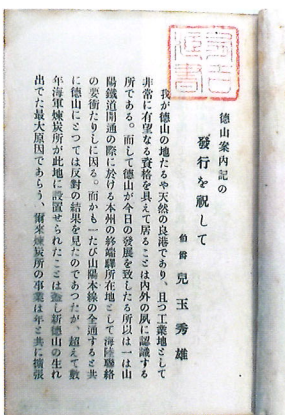 德山案内記の
發行を祝して
伯爵 兒玉秀雄
我が德山の地たるや天然の良港であり、且つ工業地として
非常に有望なる資格を具えて居ることは内外の夙に認識する
所である。而して德山が今日の發展を致したる所以は一は山
陽鐵道開通の際に於ける本州の終端驛所在地として海陸聯絡
の要衝たりしに因る。而かも一たび山陽本線の全通すると共
に德山にとつては反對の結果を見たのであつたが、超えて數
年海軍煉炭所が此地に設置せられたことは蓋し新德山の生れ
出でた最大原因であらう、爾來煉炭所の事業は年と共に擴張